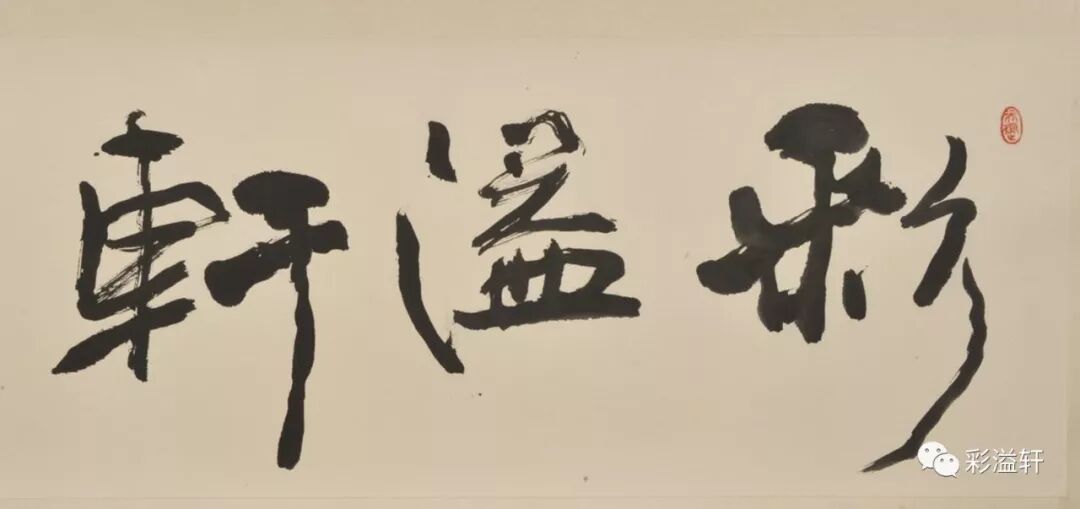 彩溢軒
彩溢轩